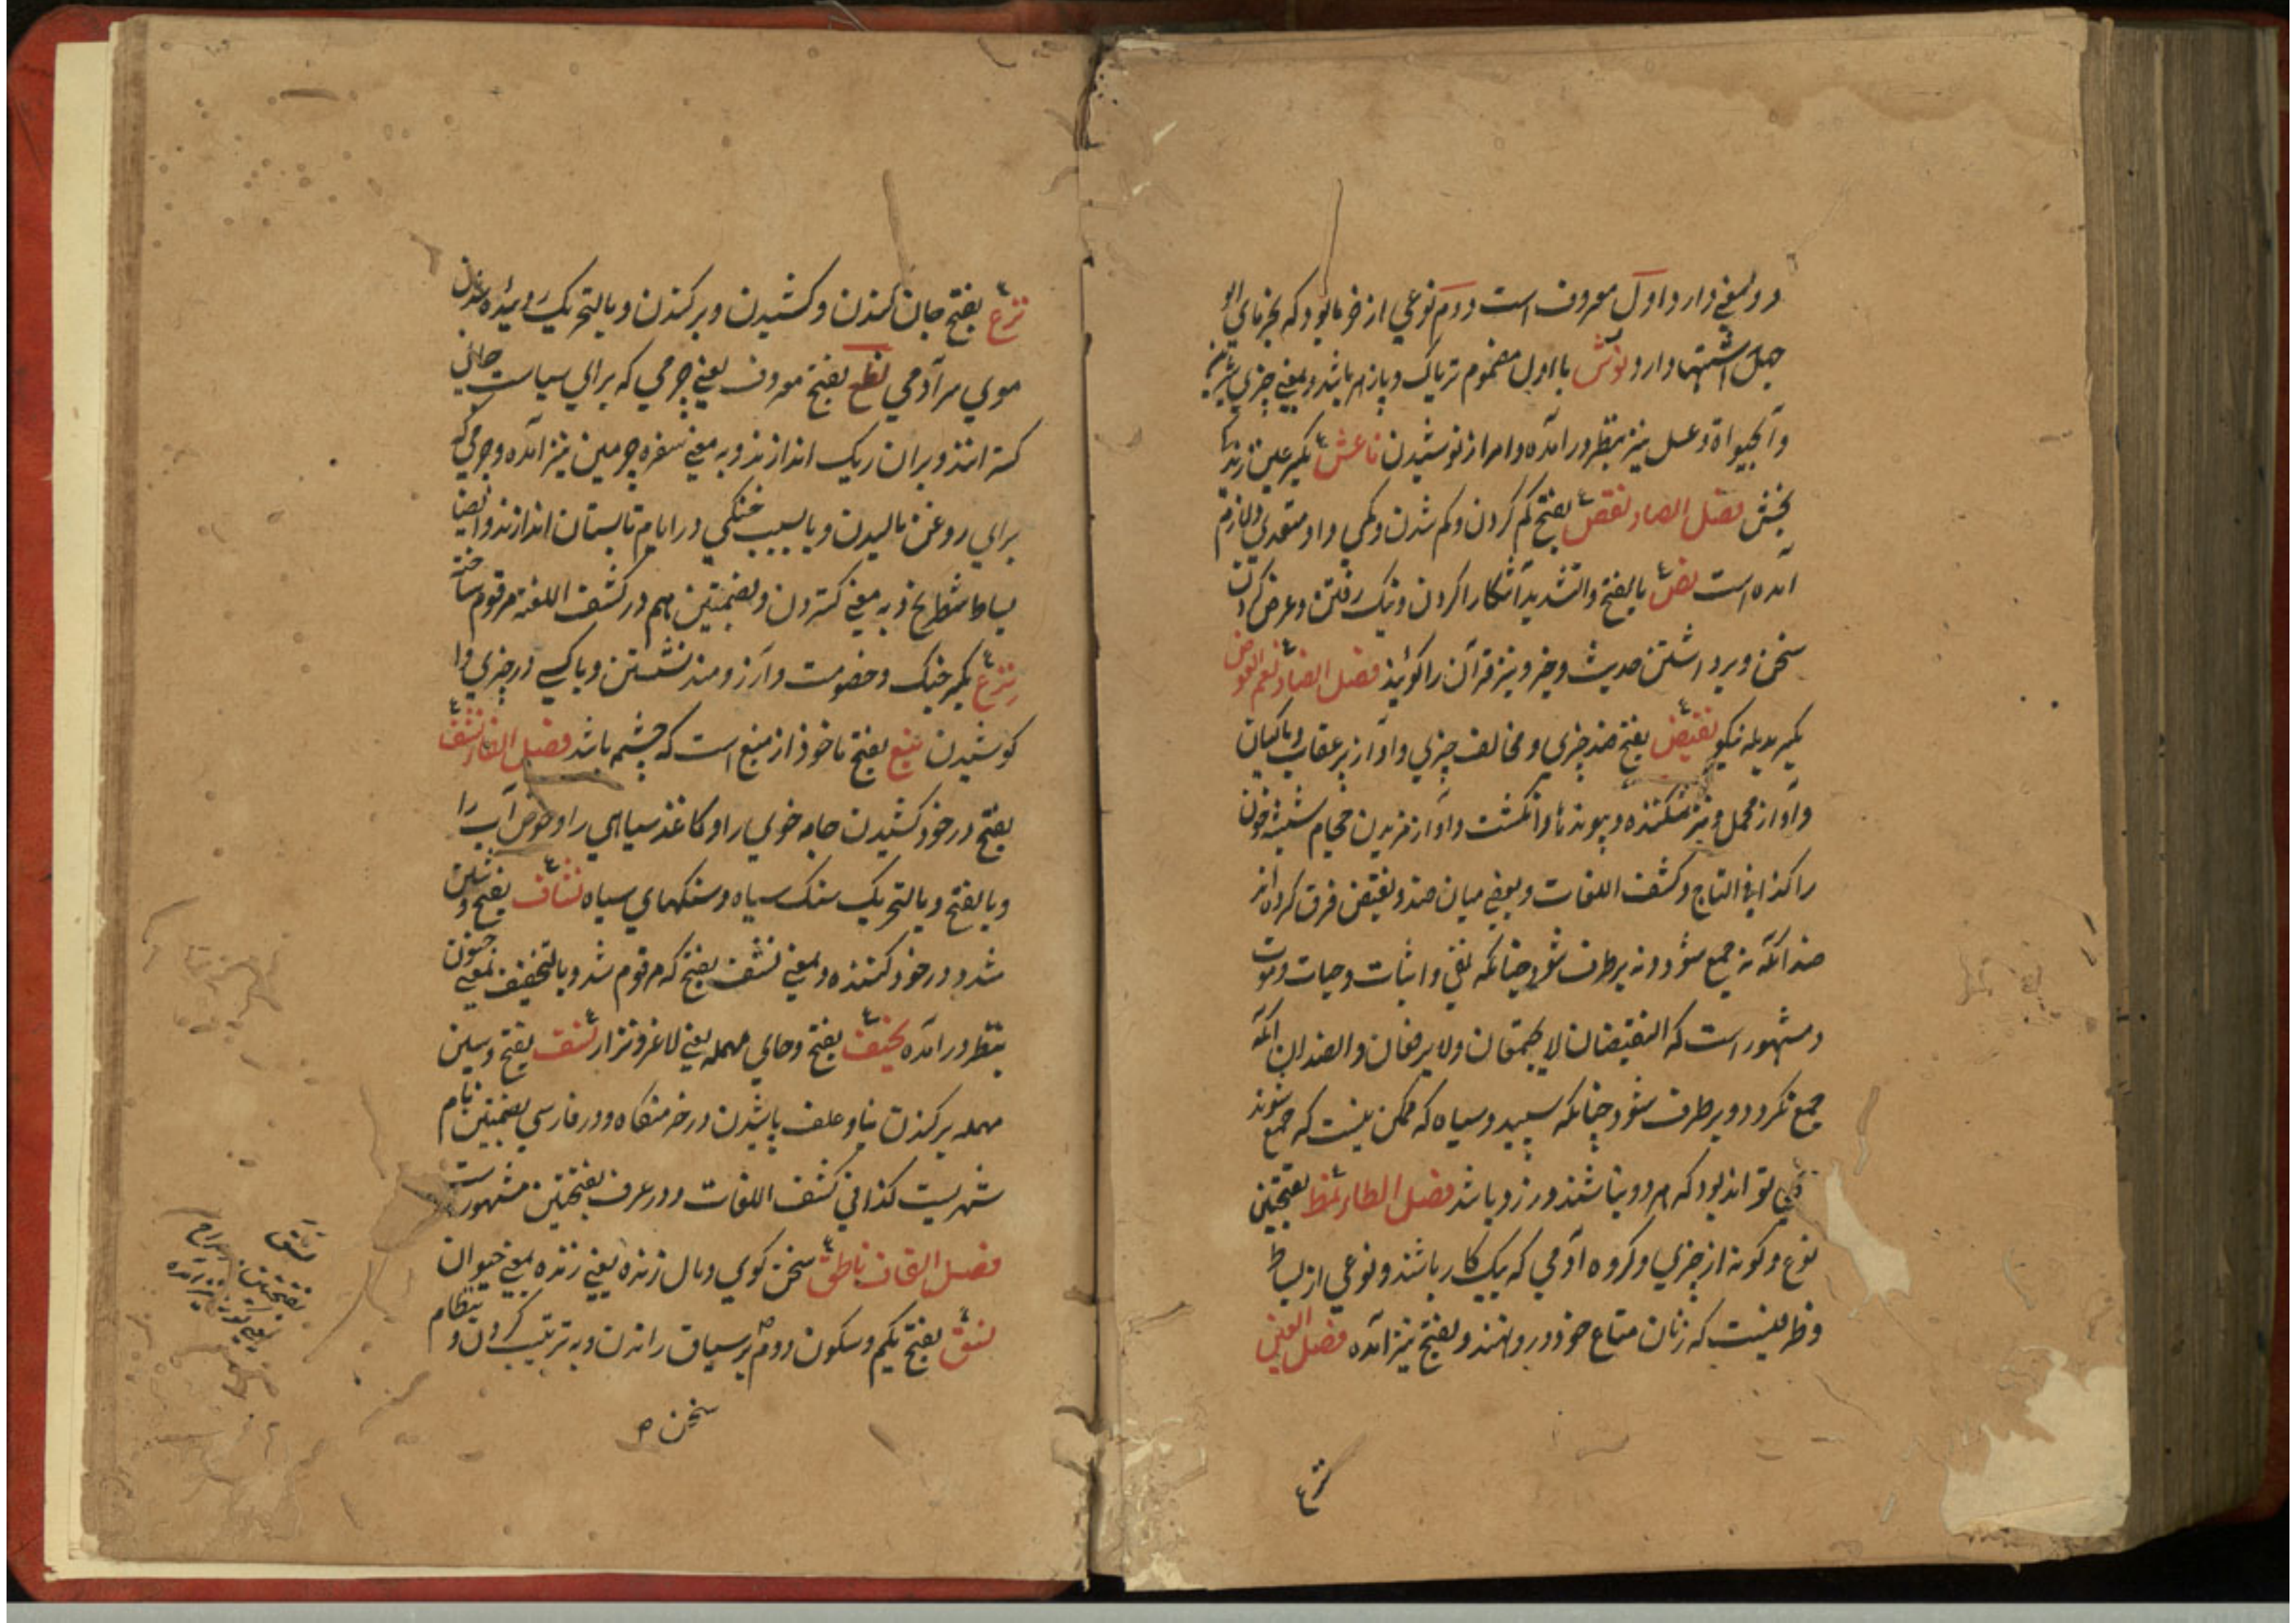 دو معنے دارد اول معروف است دوم نوعی از خرما بود که بخرمای ابو
جهل اشتهار دارد نوش با اول مضموم تریاک و پازهر باشد و بمعنے چیزی شیرین
و آبحیواة و عسل نیز بنظر درآمده و امر از نوشیدن ناعش بکسر عین زندگی
بخش فصل الصاد نقص بفتح کم کردن و کم شدن و کمی و او متعدی و لازم
آمده است نص بالفتح و التشدید آشکارا کردن و نیک رفتن و عرض کردن
سخن و برداشتن حدیث و خبر و نیز قرآن را گویند فصل الضاد نعم العوض
بکسر بدیله نیکو نقیض بفتح ضد چیزی و مخالف چیزی و آواز پر عقاب و ماکیان
و آواز محمل و نیز شکننده و پیوندها و انگشت و آواز مزیدن حجام شیشه خون
را کذا فی التاج و کشف اللغات و بعضے میان ضد و نقیض فرق کرده اند
ضد آنکه نه جمع شود و نه برطرف شود چنانکه نفی و اثبات و حیات و موت
و مشهور است که النقیضان لا یجتمعان ولا یرفعان و الضدان آنکه
جمع نگردد و برطرف شود چنانکه سپید و سیاه که ممکن نیست که جمع شوند
تواند بود که هر دو نباشند و زرد باشد فصل الطاء نمط بفتحتین
نوع و گونه از چیزی و گروه آدمی که بیک کار باشند و نوعی از بساط
و ظرفیست که زنان متاع خود درو نهند و بفتح نیز آمده فصل العین
نزع
نزع بفتح جان کندن و کشیدن و برکندن و بالتحریک روئیده شدن
موی سر آدمی نطع بفتح معروف یعنے چرمی که برای سیاست جانی
گسترانند و بران ریک اندازند و به معنے سفره چرمین نیز آمده و چرمی که
برای روغن مالیدن و یا بسبب خنکی در ایام تابستان اندازند و ایضا
بساط شطرنج و به معنے گستردن و بضمتین هم در کشف اللغة مرقوم ساخته
نزع بکسر جنک و خصومت و آرزومند نشستن و با کسے در چیزی وا
کوشیدن نبع بفتح ماخوذ از منبع است که چشمه باشد فصل الفاء نشف
بفتح در خود کشیدن جامه خوی را و کاغذ سیاهی را و حوض آب را
و بالفتح و بالتحریک سنک سیاه و سنکهای سیاه نشاف بفتح و شین
مشدد در خود کشنده و بمعنے نشف بفتح که مرقوم شد و بالتخفیف بمعنے جنون
بنظر درآمده نحیف بفتح و حای مهمله یعنے لاغر و نزار نسف بفتح و سین
مهمله برکندن بنا و علف پاشیدن در خرمنگاه و در فارسی بضمتین نام
شهریست کذا فی کشف اللغات و در عرف بفتحتین مشهور است
فصل القاف ناطق سخن گوی و مال زنده یعنے زنده بمعنے حیوان
نسق بفتح یکم و سکون دوم بر سیاق راندن و به ترتیب کردن و بنظام
سخن ص
نسق
بفتحتین
نیز آمده